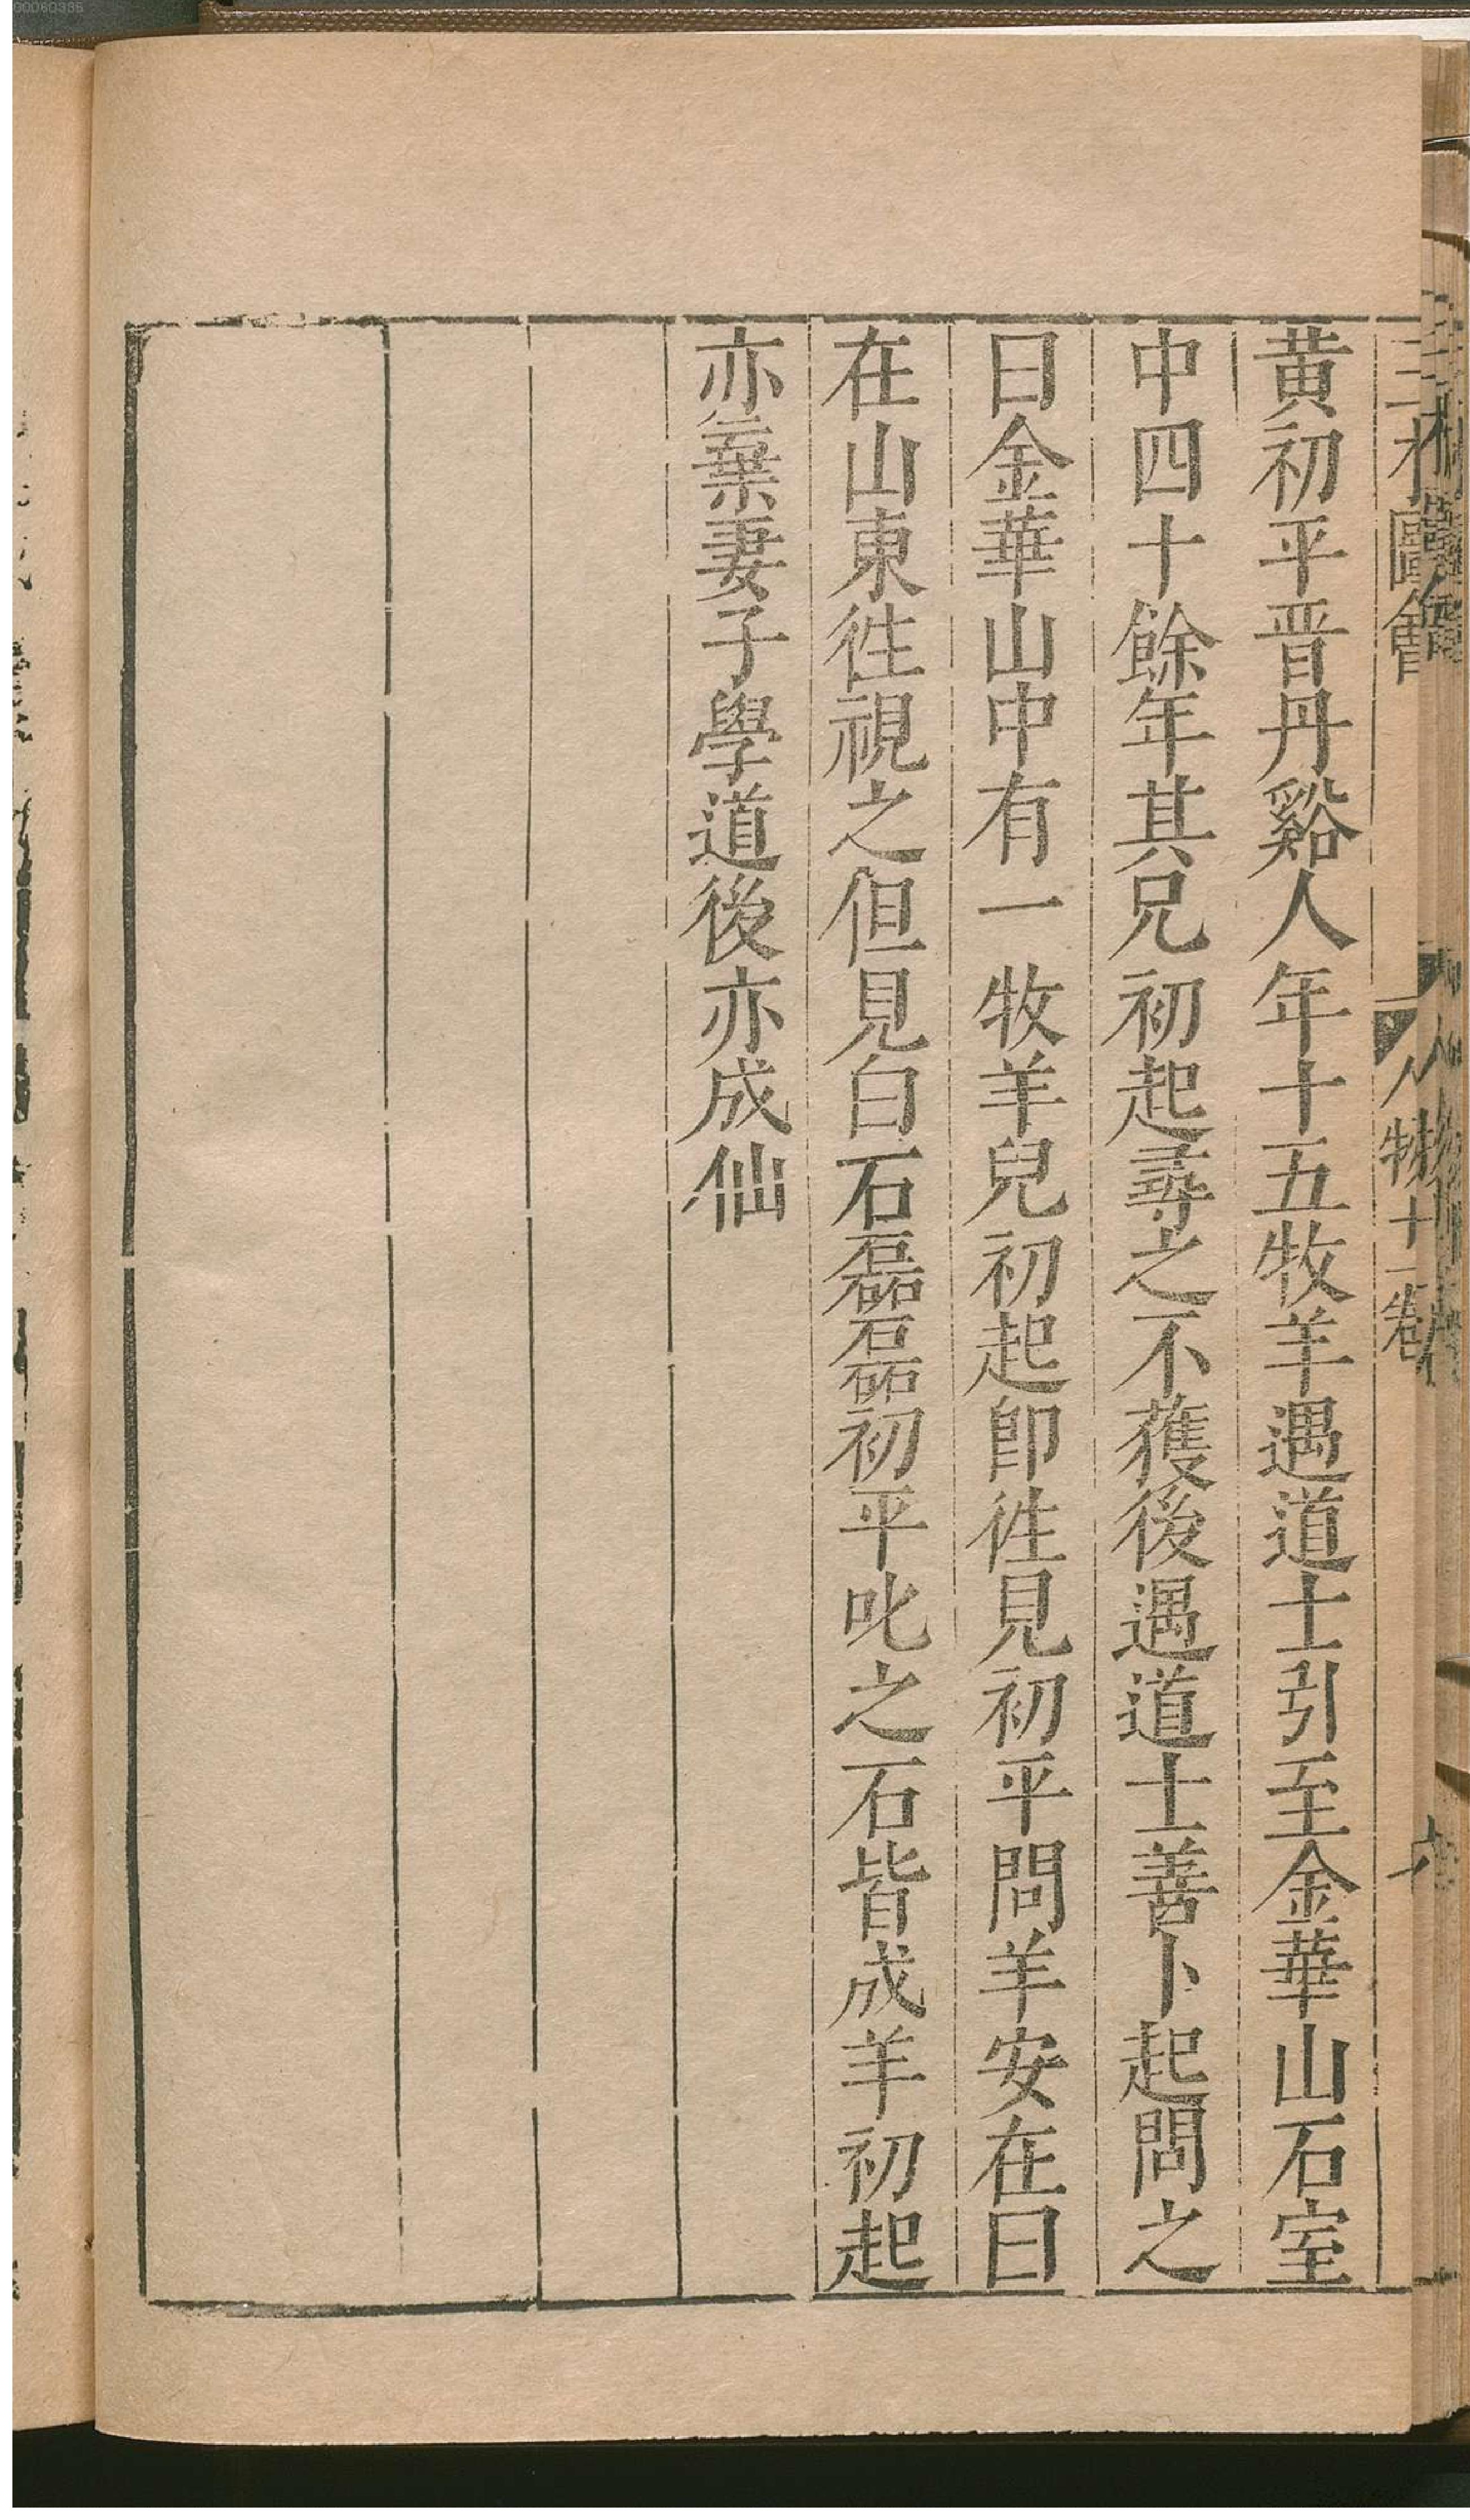 三才圖會
人物十一卷
黄初平晋丹谿人年十五牧羊遇道士引至金華山石室
中四十餘年其兄初起尋之不獲後遇道士善卜起問之
曰金華山中有一牧羊兒初起卽徃見初平問羊安在曰
在山東徃視之但見白石磊磊初平叱之石皆成羊初起
亦棄妻子學道後亦成仙